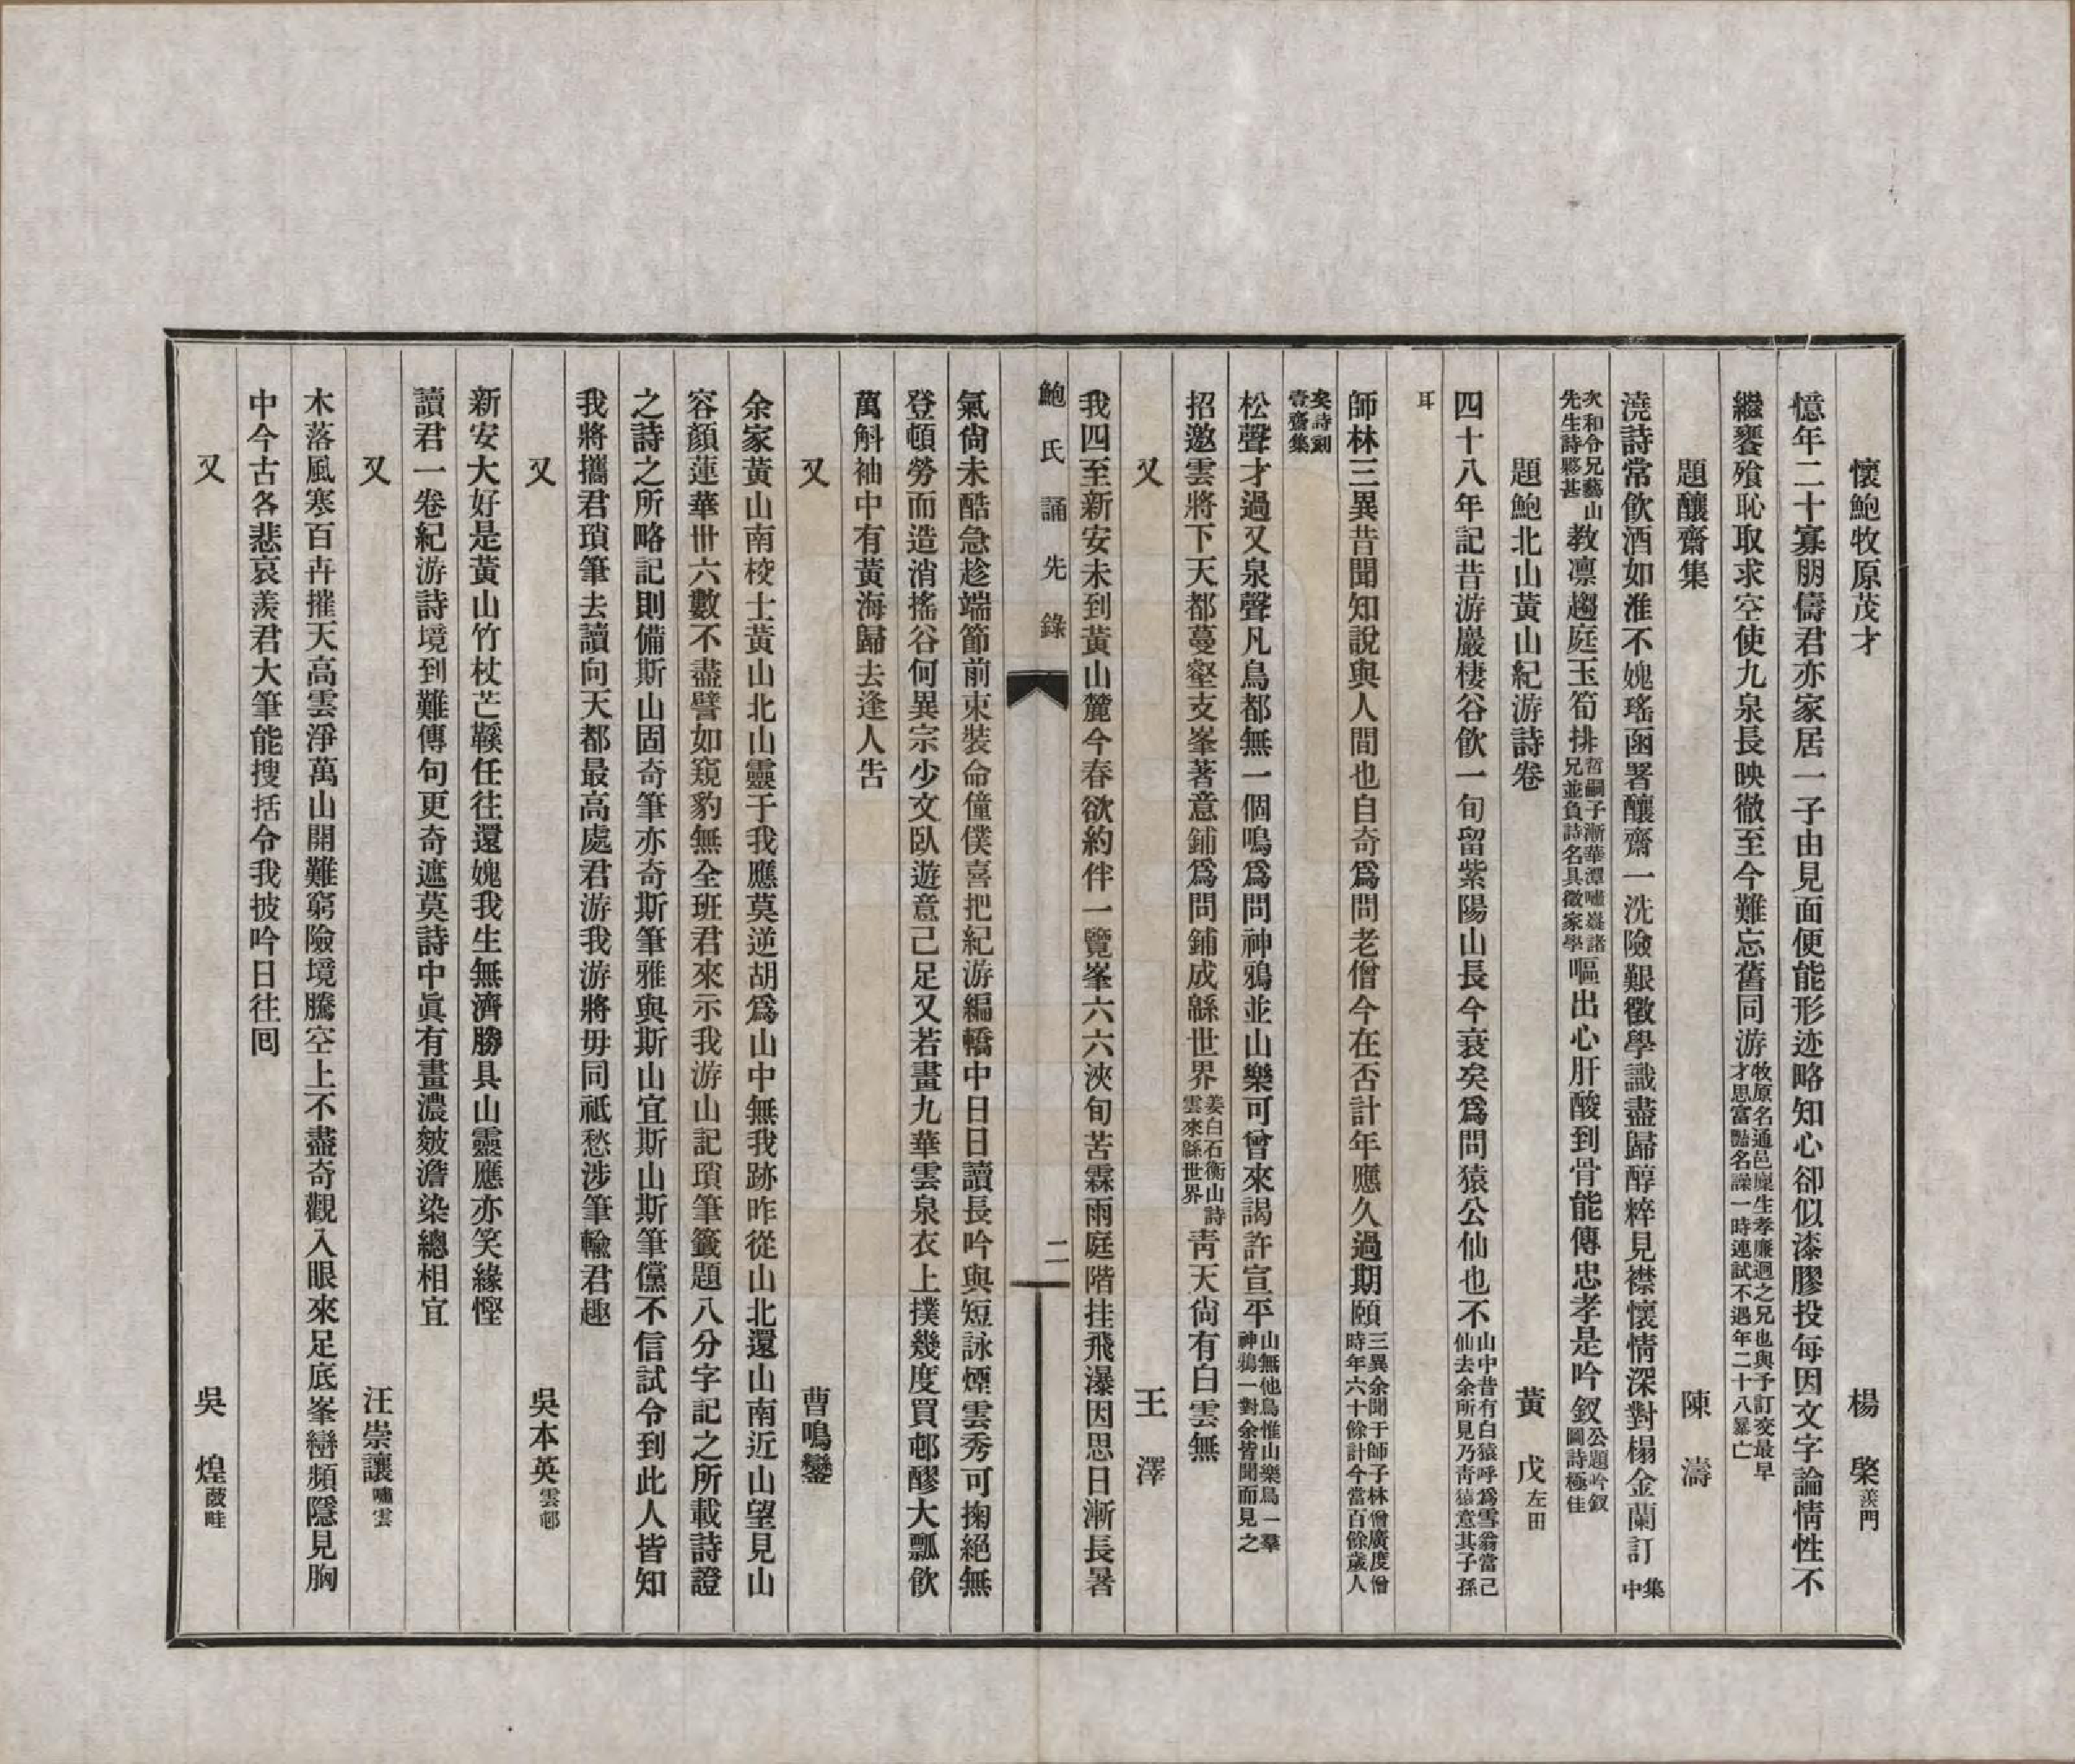 懷鮑牧原茂才　楊榮羨門
憶年二十寡朋儔君亦家居一子由見面便能形迹略知心卻似漆膠投每因文字論情性不
繼饔飧恥取求空使九泉長映徹至今難忘舊同游牧原名通邑廩生孝廉迥之兄也與予訂交最早才思富豔名譟一時連試不遇年二十八暴亡
題釀齋集　陳濤
澆詩常飲酒如淮不媿瑤函署釀齋一洗險艱徵學識盡歸醇粹見襟懷情深對榻金蘭訂集中
次和令兄藝山先生詩夥甚教凛趨庭玉筍排哲嗣子漸華潭嘯嶷諸兄並負詩名具徵家學嘔出心肝酸到骨能傳忠孝是吟釵公題吟釵圖詩極佳
題鮑北山黃山紀游詩卷　黃戊左田
四十八年記昔游巖棲谷飲一旬留紫陽山長今衰矣爲問猿公仙也不山中昔有白猿呼爲雪翁當己仙去余所見乃靑猿意其子孫
耳
師林三異昔聞知說與人間也自奇爲問老僧今在否計年應久過期頤三異余聞于師子林僧廣度僧時年六十餘計今當百餘歲人
矣詩刻壹齋集
松聲才過又泉聲凡鳥都無一個鳴爲問神鴉並山樂可曾來謁許宣平山無他鳥惟山樂鳥一羣神鴉一對余皆聞而見之
招邀雲將下天都蔓壑支峯著意鋪爲問鋪成緜世界姜白石衡山詩雲來緜世界靑天尙有白雲無
又　王澤
我四至新安未到黃山麓今春欲約伴一覽峯六六浹旬苦霖雨庭階挂飛瀑因思日漸長暑
鮑氏誦先錄　二
氣尙未酷急趁端節前束裝命僮僕喜把紀游編轎中日日讀長吟與短詠煙雲秀可掬絕無
登頓勞而造消搖谷何異宗少文臥遊意己足又若畫九華雲泉衣上撲幾度買邨醪大瓢飮
萬斛袖中有黃海歸去逢人吿
又　曹鳴鑾
余家黃山南校士黃山北山靈于我應莫逆胡爲山中無我跡昨從山北還山南近山望見山
容顏蓮華卌六數不盡譬如窺豹無全班君來示我游山記瑣筆籤題八分字記之所載詩證
之詩之所略記則備斯山固奇筆亦奇斯筆雅與斯山宜斯山斯筆儻不信試令到此人皆知
我將攜君瑣筆去讀向天都最高處君游我游將毋同祗愁涉筆輸君趣
又　吳本英雲邨
新安大好是黃山竹杖芒鞵任往還媿我生無濟勝具山靈應亦笑緣慳
讀君一卷紀游詩境到難傳句更奇遮莫詩中眞有畫濃皴澹染總相宜
又　汪崇讓嘯雲
木落風寒百卉摧天高雲淨萬山開難窮險境騰空上不盡奇觀入眼來足底峯巒頻隱見胸
中今古各悲哀羨君大筆能搜括令我披吟日往囘
又　吳煌畦